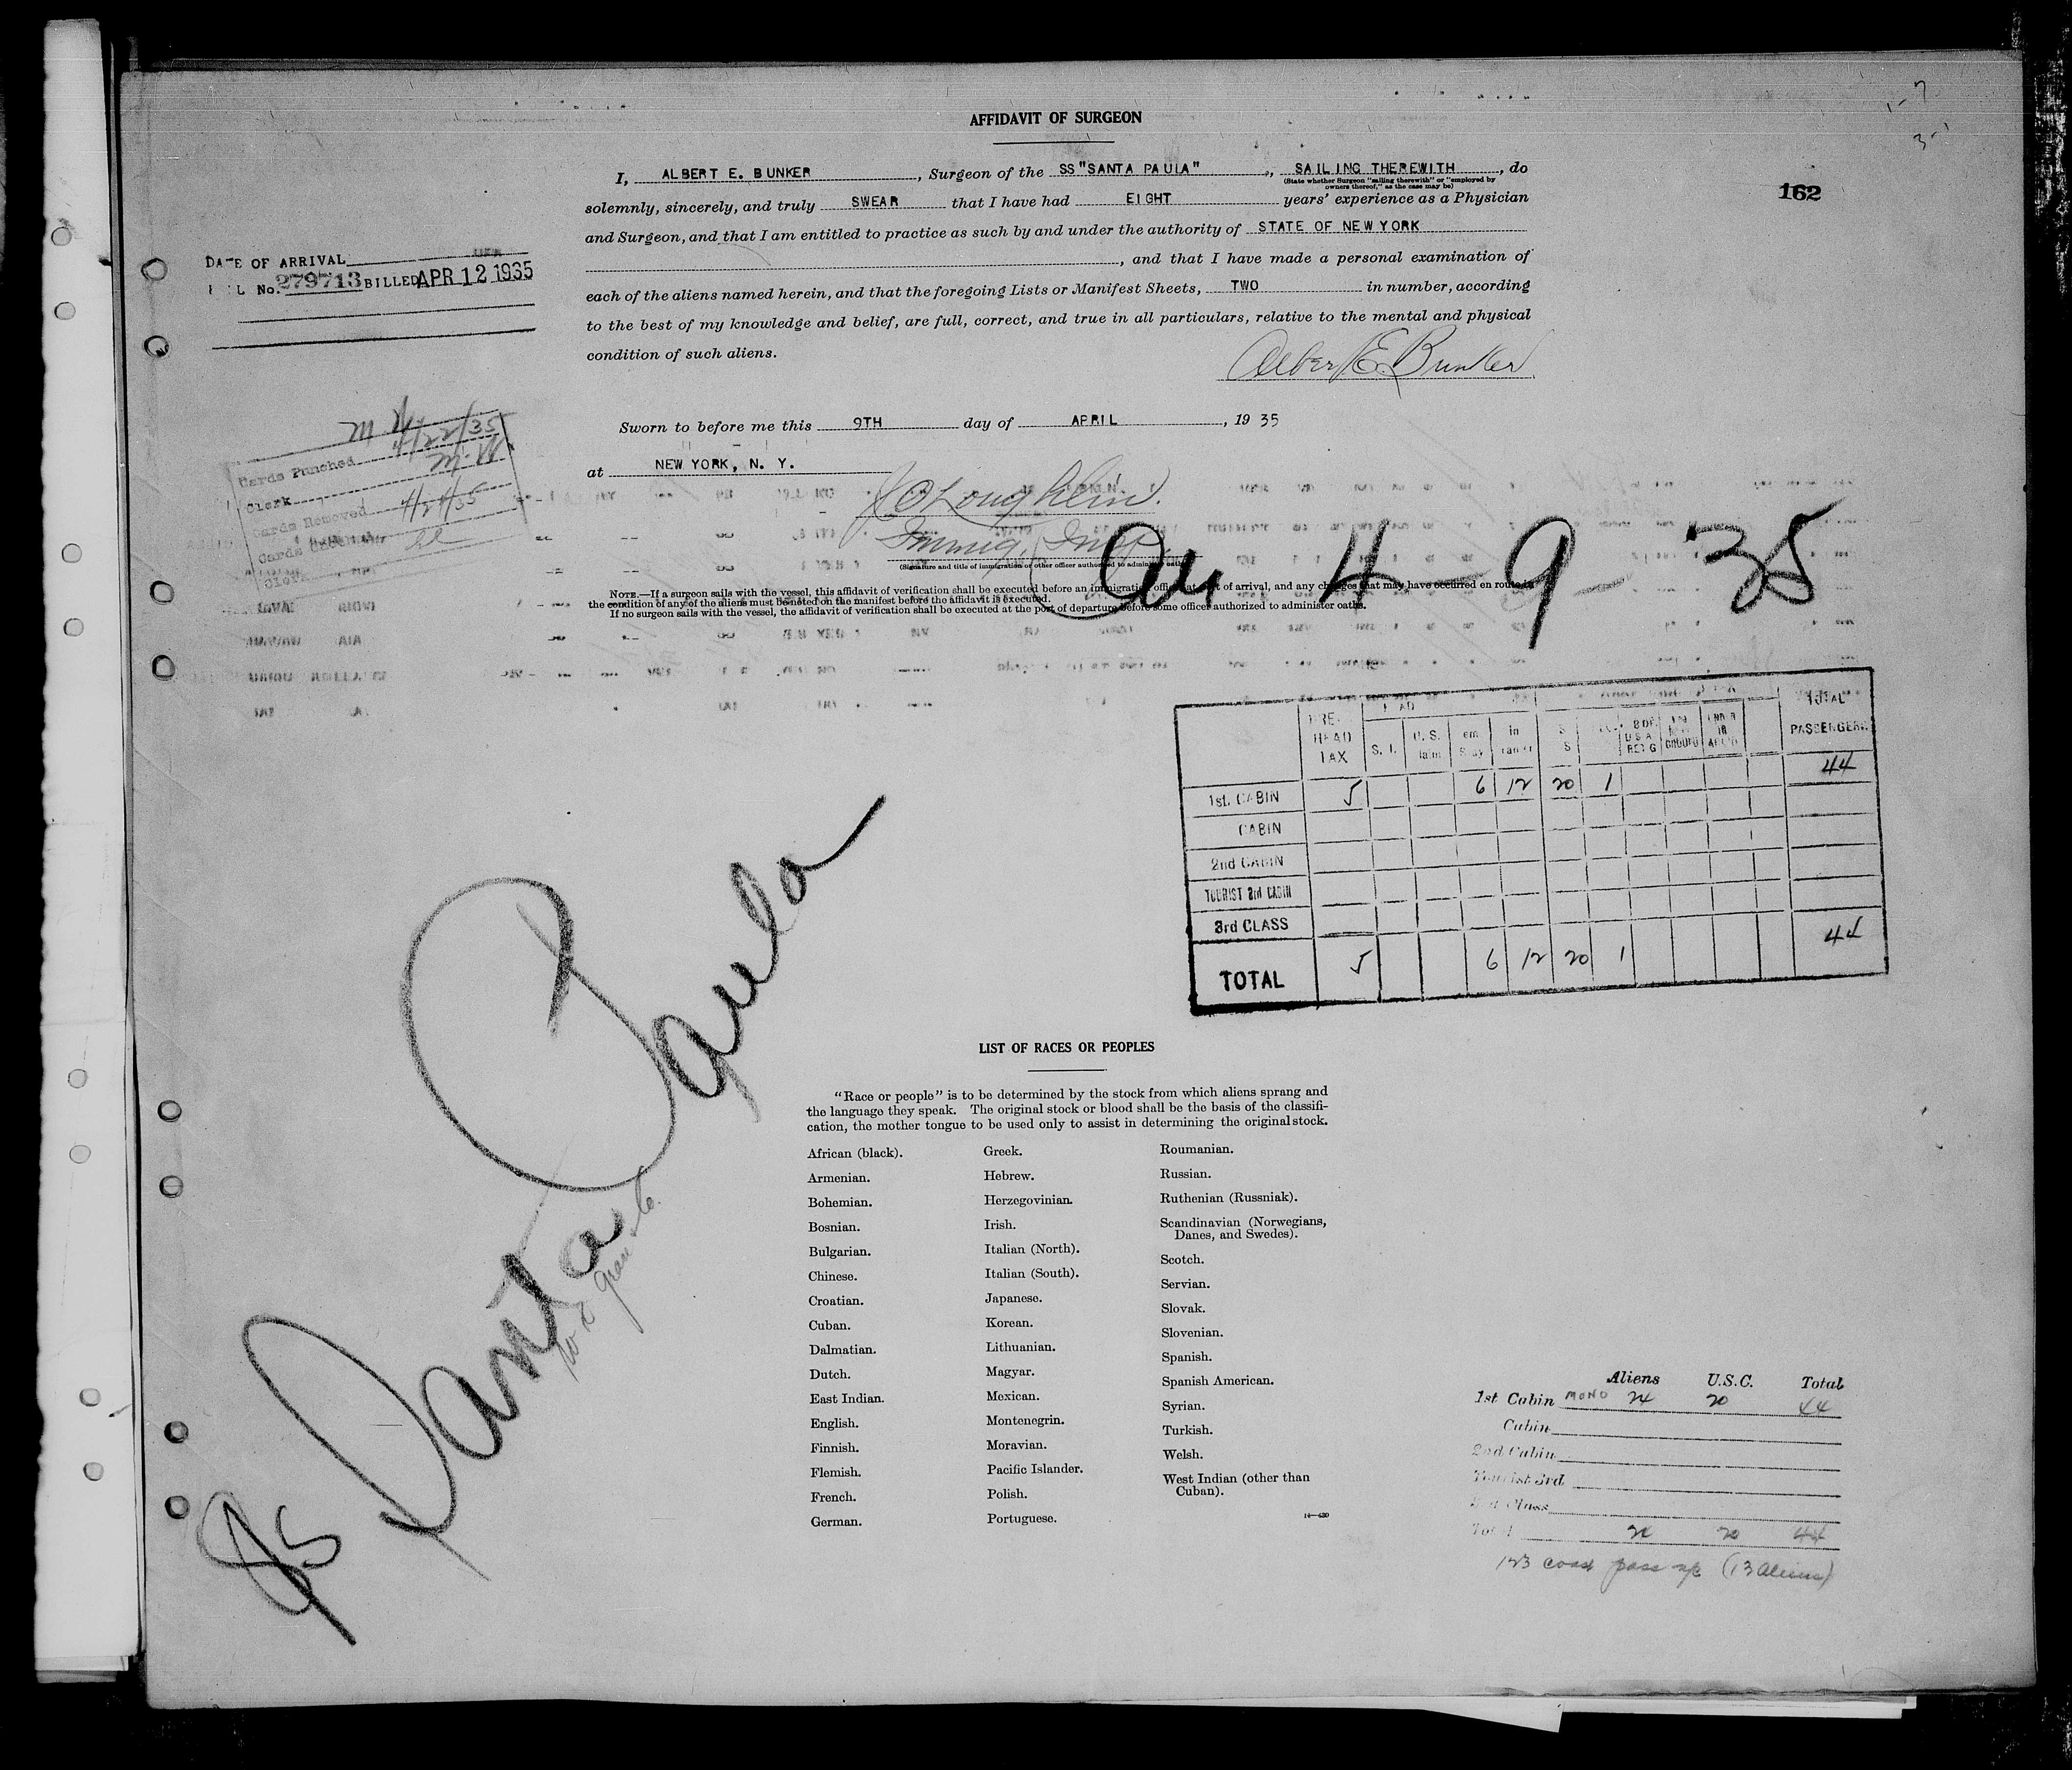 AFFIDAVIT OF SURGEON
I, ALBERT E. BUNKER, Surgeon of the SS "SANTA PAULA", SAILING THEREWITH, do
(State whether Surgeon "sailing therewith" or "employed by
owners thereof," as the case may be)
162
solemnly, sincerely, and truly SWEAR that I have had EIGHT years' experience as a Physician
and Surgeon, and that I am entitled to practice as such by and under the authority of STATE OF NEW YORK
, and that I have made a personal examination of
each of the aliens named herein, and that the foregoing Lists or Manifest Sheets, TWO in number, according
to the best of my knowledge and belief, are full, correct, and true in all particulars, relative to the mental and physical
condition of such aliens.
Albert E. Bunker
DATE OF ARRIVAL
No. 279713 BILLED APR 12 1935
Sworn to before me this 9TH day of APRIL, 19 35
at NEW YORK, N. Y.
Immig. Insp.
(Signature and title of immigration or other officer authorized to administer oath)
Cards Punched 4/22/35
Clerk M.W.
Cards Removed
Clerk
4-9-35
NOTE.—If a surgeon sails with the vessel, this affidavit of verification shall be executed before an immigration officer at port of arrival, and any changes that may have occurred en route in
the condition of any of the aliens must be noted on the manifest before the affidavit is executed.
If no surgeon sails with the vessel, the affidavit of verification shall be executed at the port of departure before some officer authorized to administer oaths.
PRE- HEAD TAX S. I. U. S. in TOTAL PASSENGERS
1st. CABIN 5 6 12 20 1 44
CABIN
2nd CABIN
TOURIST 3rd CABIN
3rd CLASS
TOTAL 5 6 12 20 1 44
SS Santa Paula
LIST OF RACES OR PEOPLES
"Race or people" is to be determined by the stock from which aliens sprang and
the language they speak. The original stock or blood shall be the basis of the classifi-
cation, the mother tongue to be used only to assist in determining the original stock.
African (black).
Armenian.
Bohemian.
Bosnian.
Bulgarian.
Chinese.
Croatian.
Cuban.
Dalmatian.
Dutch.
East Indian.
English.
Finnish.
Flemish.
French.
German.
Greek.
Hebrew.
Herzegovinian.
Irish.
Italian (North).
Italian (South).
Japanese.
Korean.
Lithuanian.
Magyar.
Mexican.
Montenegrin.
Moravian.
Pacific Islander.
Polish.
Portuguese.
Roumanian.
Russian.
Ruthenian (Russniak).
Scandinavian (Norwegians,
Danes, and Swedes).
Scotch.
Servian.
Slovak.
Slovenian.
Spanish.
Spanish American.
Syrian.
Turkish.
Welsh.
West Indian (other than
Cuban).
14—430
Aliens U.S.C. Total
1st Cabin MONO 24 20 44
Cabin
2nd Cabin
Tourist 3rd
Class
Total 24 20 44
123 coast pass (13 aliens)